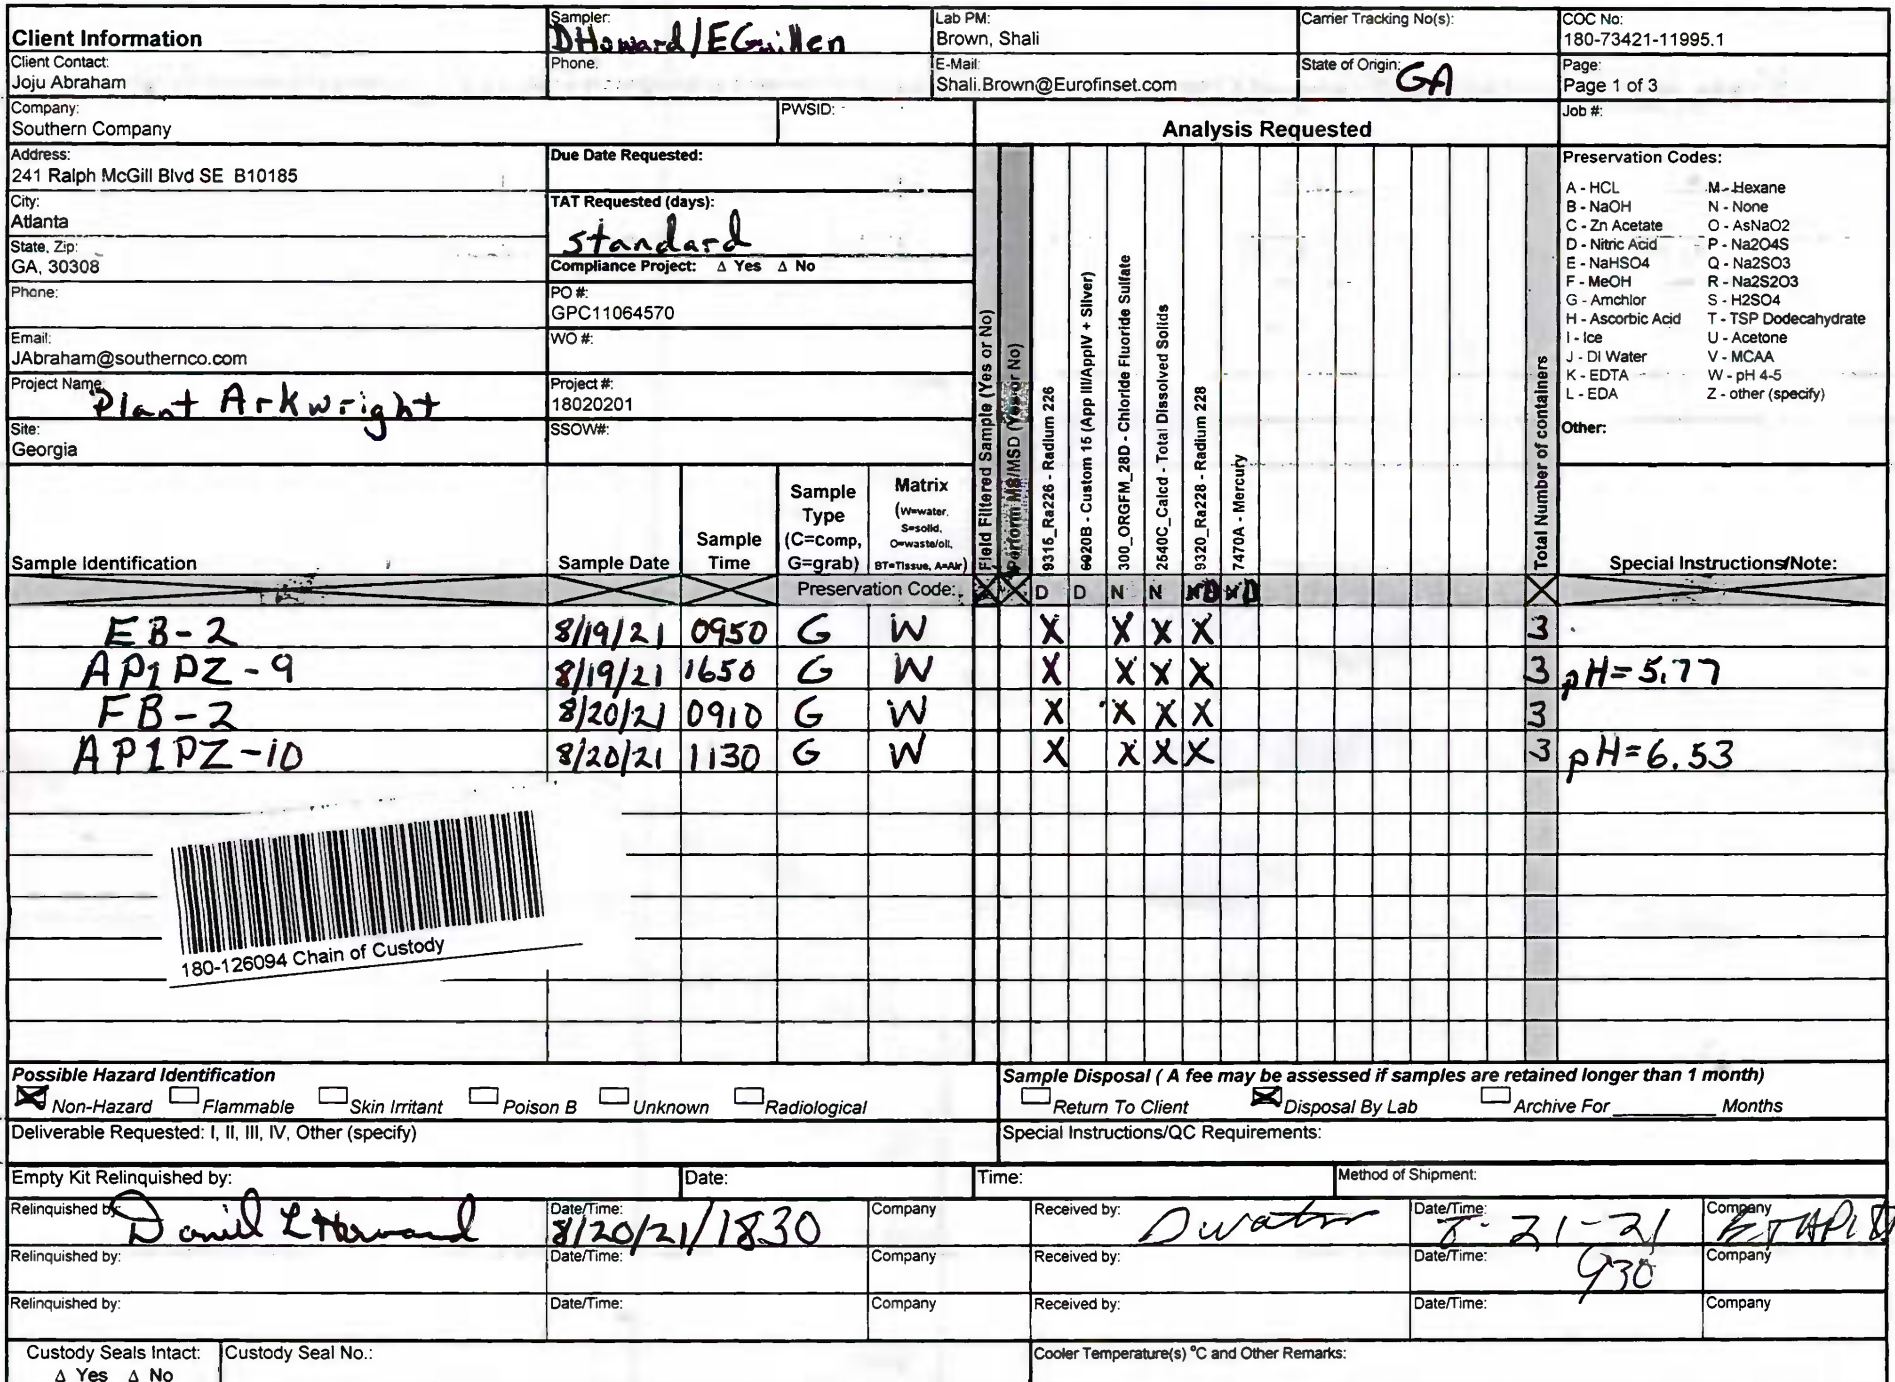 Client Information
Sampler:
DHoward/EGuillen
Lab PM:
Brown, Shali
Carrier Tracking No(s):
COC No:
180-73421-11995.1
Client Contact:
Joju Abraham
Phone:
E-Mail:
Shali.Brown@Eurofinset.com
State of Origin:
GA
Page:
Page 1 of 3
Company:
Southern Company
PWSID:
Analysis Requested
Job #:
Address:
241 Ralph McGill Blvd SE B10185
Due Date Requested:
City:
Atlanta
TAT Requested (days):
standard
State, Zip:
GA, 30308
Compliance Project: Δ Yes Δ No
Phone:
PO #:
GPC11064570
Email:
JAbraham@southernco.com
WO #:
Project Name:
Plant Arkwright
Project #:
18020201
Site:
Georgia
SSOW#:
Preservation Codes:
A - HCL M - Hexane
B - NaOH N - None
C - Zn Acetate O - AsNaO2
D - Nitric Acid P - Na2O4S
E - NaHSO4 Q - Na2SO3
F - MeOH R - Na2S2O3
G - Amchlor S - H2SO4
H - Ascorbic Acid T - TSP Dodecahydrate
I - Ice U - Acetone
J - DI Water V - MCAA
K - EDTA W - pH 4-5
L - EDA Z - other (specify)
Other:
Sample Identification
Sample Date
Sample Time
Sample Type (C=comp, G=grab)
Matrix
(W=water, S=solid, O=waste/oil, BT=Tissue, A=Air)
Field Filtered Sample (Yes or No)
Perform MS/MSD (Yes or No)
9315_Ra226 - Radium 226
6020B - Custom 15 (App III/AppIV + Silver)
300_ORGFM_28D - Chloride Fluoride Sulfate
2540C_Calcd - Total Dissolved Solids
9320_Ra228 - Radium 228
7470A - Mercury
Total Number of containers
Special Instructions/Note:
Preservation Code: X X D D N N D D X
EB-2 8/19/21 0950 G W X X X X 3
AP1PZ-9 8/19/21 1650 G W X X X X 3 pH=5.77
FB-2 8/20/21 0910 G W X X X X 3
AP1PZ-10 8/20/21 1130 G W X X X X 3 pH=6.53
180-126094 Chain of Custody
Possible Hazard Identification
Non-Hazard Flammable Skin Irritant Poison B Unknown Radiological
Sample Disposal ( A fee may be assessed if samples are retained longer than 1 month)
Return To Client Disposal By Lab Archive For ______ Months
Deliverable Requested: I, II, III, IV, Other (specify)
Special Instructions/QC Requirements:
Empty Kit Relinquished by: Date: Time: Method of Shipment:
Relinquished by:
Daniel L Howard
Date/Time:
8/20/21/1830
Company
Received by:
Date/Time:
8-21-21
930
Company
Relinquished by: Date/Time: Company Received by: Date/Time: Company
Relinquished by: Date/Time: Company Received by: Date/Time: Company
Custody Seals Intact:
Δ Yes Δ No
Custody Seal No.:
Cooler Temperature(s) °C and Other Remarks: